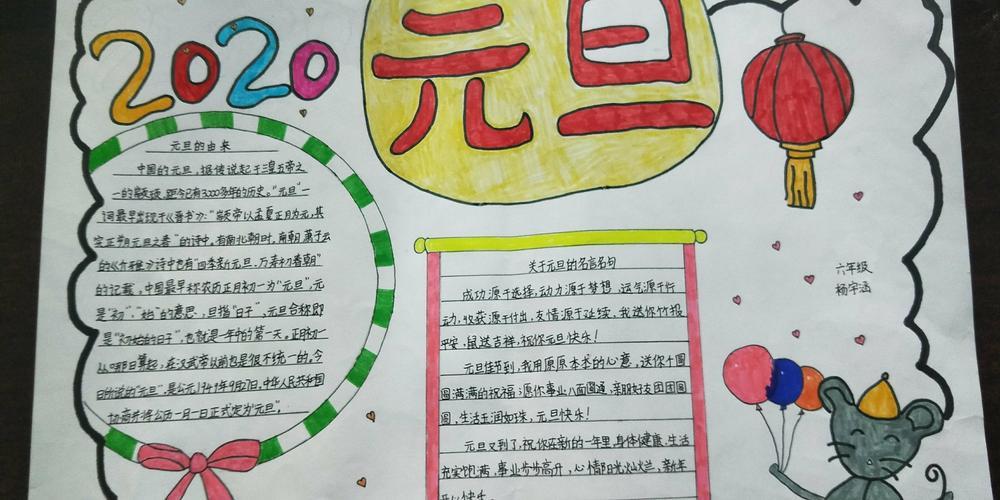 2020
元旦
元旦的由来
中国的元旦，据传说起于三皇五帝之
一的颛顼，距今已有3000多年的历史。"元旦"一
词最早出现于《晋书》："颛帝以孟夏正月为元，其
实正朔元旦之春"的诗中。有南北朝时，南朝萧子云
的《介雅》诗中也有"四季新元旦，万寿初春朝"
的记载。中国最早称农历正月初一为"元旦"，元
是"初"、"始"的意思，旦指"日子"，元旦合称即
是"初始的日子"，也就是一年中的第一天。正月初一
从哪日算起，在汉武帝以前也是很不统一的。今
日所说的"元旦"，是公元1949年9月27日，中华人民共和国
协商并将公历一月一日正式定为"元旦"。
关于元旦的名言名句
成功源于选择，动力源于梦想，运气源于行
动，收获源于付出，友情源于延续，我送你竹报
平安，鼠送吉祥，祝你元旦快乐！
元旦佳节到，我用原原本本的心意，送你个圆
圆满满的祝福；愿你事业八面圆通，亲朋好友团团圆
圆，生活玉润如珠，元旦快乐！
元旦又到了，祝你在新的一年里，身体健康，生活
充实饱满，事业步步高升，心情阳光灿灿兰，新年
快乐
六年级
杨宇涵